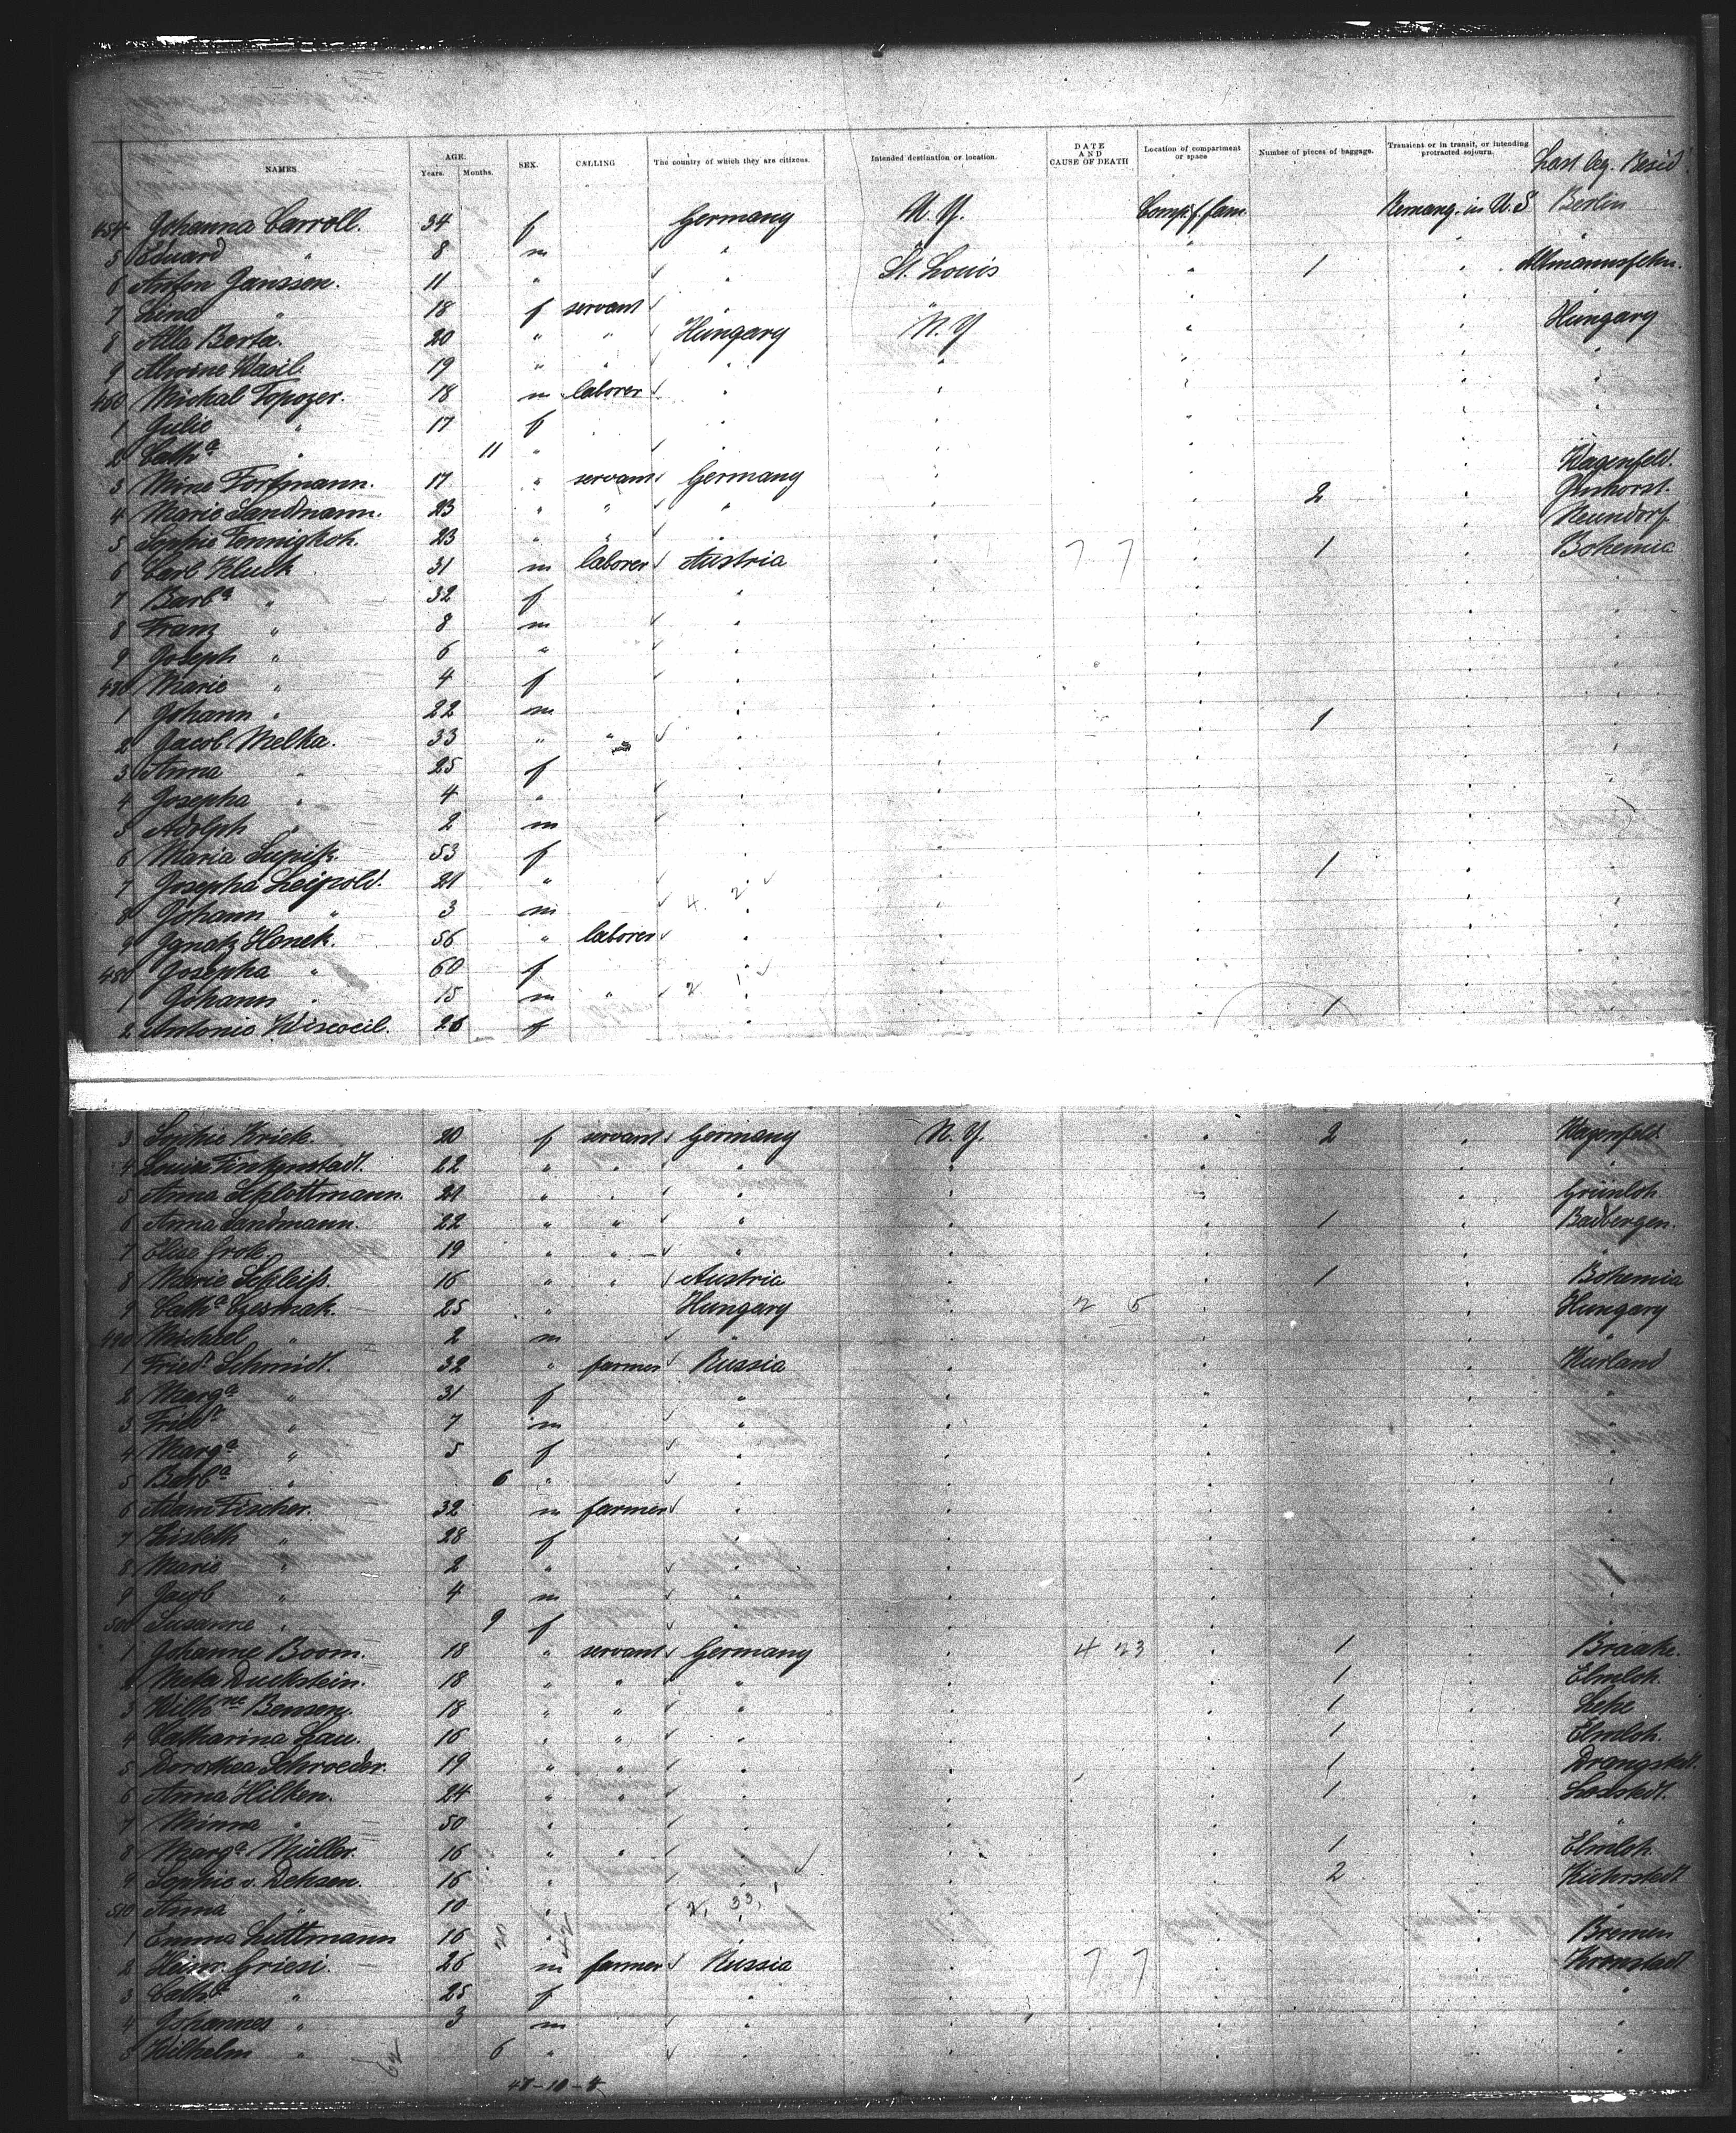 NAMES AGE. Years. Months. SEX. CALLING The country of which they are citizens. Intended destination or location. DATE AND CAUSE OF DEATH Location of compartment or space Number of pieces of baggage. Transient or in transit, or intending protracted sojourn. Last leg. Resid.
454 Johanna Carroll. 34 f Germany N.Y. Berlin
5 Eduard " 8 m "
6 Anton Janssen. 11 " " St. Louis 1
7 Lina " 18 f servant " "
8 Alla Berta. 20 " " Hungary N.Y Hungary
9 19 " " "
460 Michal Topozer. 18 m laborer "
1 Julie " 17 f "
2 Cath.a " 11 " "
3 Mine Fortmann. 17 " servant Germany Wagenfeld.
4 Marie Landmann. 23 " " " 2
5 Sophie 23 " " " Neundorf
6 Carl Kluck 31 m laborer Austria 7 7 1 Bohemia
7 Barb.a " 32 f "
8 Franz " 8 m "
9 Joseph " 6 " "
470 Marie " 4 f "
1 Johann " 22 m " 1
2 Jacob Melka. 33 " " "
3 Anna " 25 f "
4 Josepha " 4 " "
5 Adolph " 2 m "
6 Maria 53 f " 1
7 Josepha Leipold. 21 " "
8 Johann " 3 m 4. 2 "
9 Ignatz Honek. 56 " laborer "
480 Josepha " 60 f "
1 Johann " 15 m " 2 1 1
2 Antonie Wiscocil. 26 f "
3 Sophie Krick. 20 f servant Germany N.Y. 2 Wagenfeld.
4 Louise Finkenstadt. 22 " " " "
5 Anna Schlottmann. 21 " " " Grünloh
6 Anna Landmann. 22 " " " 1 Badbergen.
7 Elise Grok. 19 " " " "
8 Marie Schleiss. 16 " " Austria 1 Bohemia
9 Cath.a Czesmak. 25 " Hungary 2 5 Hungary
490 Michael " 2 m " "
1 Fried. Schmidt. 32 " farmer Russia Kurland
2 Marg.a " 31 f " "
3 Fried. " 7 m " "
4 Marg.a " 5 f " "
5 Barb.a " 6 " "
6 Adam Fischer. 32 m farmer "
7 Lisbeth " 28 f "
8 Marie " 2 " "
9 Jacob " 4 m "
500 Susanne " 9 f "
1 Johanne Boom. 18 " servant Germany 4 23 1 Braake.
2 Meta Duckstein. 18 " " " 1 Elmloh.
3 Wilh.ne Benson. 18 " " " 1 Lehe
4 Catharina Lau. 16 " " " 1 Elmloh.
5 Dorothea Schroeder. 19 " " " 1 Drangstedt.
6 Anna Hilken. 24 " " " 1 Loxstedt.
7 Minna " 50 " " "
8 Marg.a Müller. 16 " " " 1 Elmloh.
9 Sophie v. Dehsen. 16 " " 2 Kührstedt
510 Anna " 10 " 2, 33, 1 "
1 Emma Lüttmann 16 " Bremen
2 Heinr. Griesi. 26 m farmer Russia 7 7 Kronstadt
3 Cath.a " 25 f " "
4 Johannes " 3 m " "
5 Wilhelm " 6 " " "